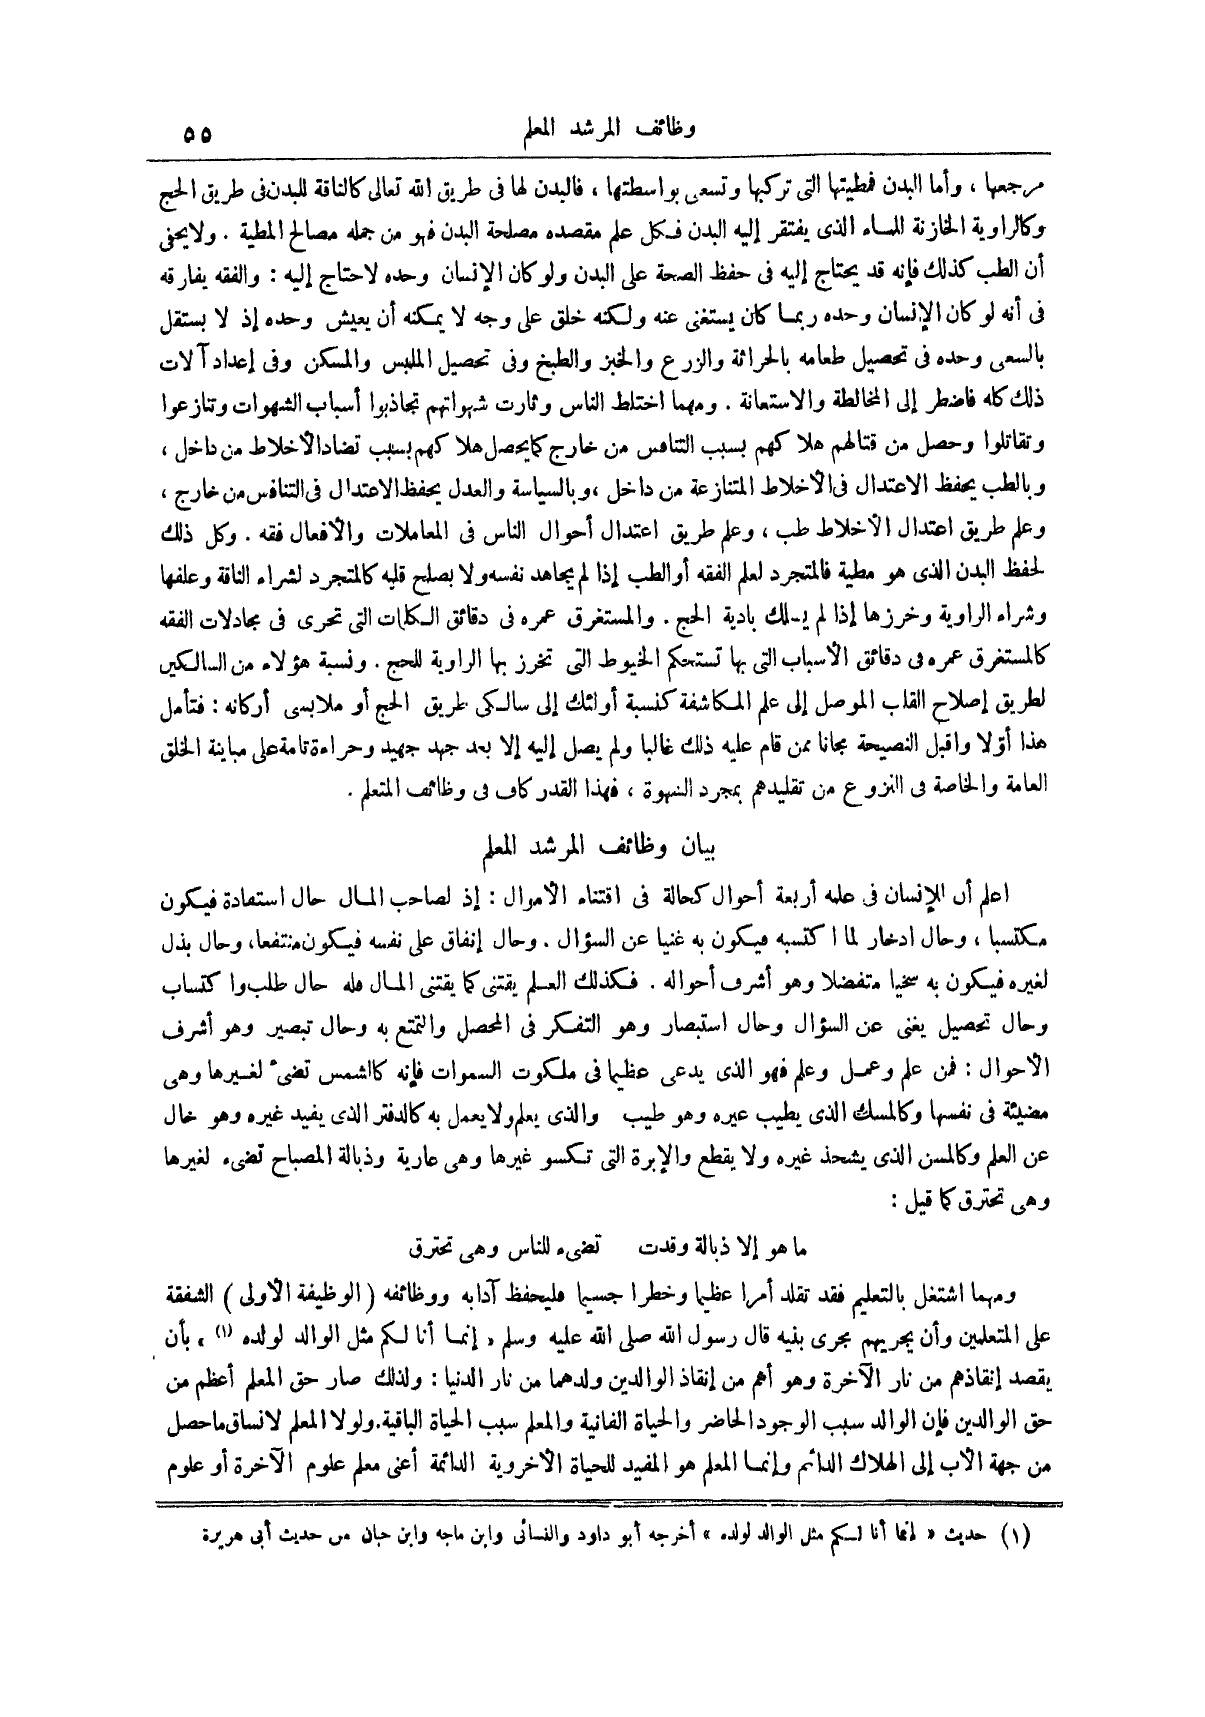 وظائف المرشد المعلم
٥٥
مرجعها ، وأما البدن فمطيتها التى تركبها وتسعى بواسطتها ، فالبدن لها فى طريق الله تعالى كالناقة للبدن فى طريق الحج
وكالراوية الخازنة للماء الذى يفتقر إليه البدن فكل علم مقصده مصلحة البدن فهو من جمله مصالح المطية . ولا يخفى
أن الطب كذلك فإنه قد يحتاج إليه فى حفظ الصحة على البدن ولو كان الإنسان وحده لاحتاج إليه : والفقه يفارقه
فى أنه لو كان الإنسان وحده ربما كان يستغنى عنه ولكنه خلق على وجه لا يمكنه أن يعيش وحده إذ لا يستقل
بالسعى وحده فى تحصيل طعامه بالحراثة والزرع والخبز والطبخ وفى تحصيل الملبس والمسكن وفى إعداد آلات
ذلك كله فاضطر إلى المخالطة والاستعانة . ومهما اختلط الناس وثارت شهواتهم تجاذبوا أسباب الشهوات وتنازعوا
وتقاتلوا وحصل من قتالهم هلاكهم بسبب التنافس من خارج كما يحصل هلاكهم بسبب تضاد الأخلاط من داخل ،
وبالطب يحفظ الاعتدال فى الأخلاط المتنازعة من داخل ، وبالسياسة والعدل يحفظ الاعتدال فى التنافس من خارج ،
وعلم طريق اعتدال الأخلاط طب ، وعلم طريق اعتدال أحوال الناس فى المعاملات والأفعال فقه . وكل ذلك
لحفظ البدن الذى هو مطية فالمتجرد لعلم الفقه أو الطب إذا لم يجاهد نفسه ولا يصلح قلبه كالمتجرد لشراء الناقة وعلفها
وشراء الراوية وخرزها إذا لم يسلك بادية الحج . والمستغرق عمره فى دقائق الكلمات التى تجرى فى مجادلات الفقه
كالمستغرق عمره فى دقائق الأسباب التى بها تستحكم الخيوط التى تخرز بها الراوية للحج . ونسبة هؤلاء من السالكين
لطريق إصلاح القلب الموصل إلى علم المكاشفة كنسبة أولئك إلى سالكى طريق الحج أو ملابسى أركانه : فتأمل
هذا أوّلا واقبل النصيحة مجانا ممن قام عليه ذلك غالبا ولم يصل إليه إلا بعد جهد جهيد وجراءة تامة على مباينة الخلق
العامة والخاصة فى النزوع من تقليدهم بمجرد الشهوة ، فهذا القدر كاف فى وظائف المتعلم .
بيان وظائف المرشد المعلم
اعلم أن للإنسان فى علمه أربعة أحوال كحالة فى اقتناء الأموال : إذ لصاحب المال حال استفادة فيكون
مكتسبا ، وحال ادخار لما اكتسبه فيكون به غنيا عن السؤال . وحال إنفاق على نفسه فيكون منتفعا ، وحال بذل
لغيره فيكون به سخيا متفضلا وهو أشرف أحواله . فكذلك العلم يقتنى كما يقتنى المال فله حال طلب واكتساب
وحال تحصيل يغنى عن السؤال وحال استبصار وهو التفكر فى المحصل والتمتع به وحال تبصير وهو أشرف
الأحوال : فمن علم وعمل وعلم فهو الذى يدعى عظيما فى ملكوت السموات فإنه كالشمس تضىء لغيرها وهى
مضيئة فى نفسها وكالمسك الذى يطيب غيره وهو طيب والذى يعلم ولا يعمل به كالدفتر الذى يفيد غيره وهو خال
عن العلم وكالمسن الذى يشحذ غيره ولا يقطع والإبرة التى تكسو غيرها وهى عارية وذبالة المصباح تضىء لغيرها
وهى تحترق كما قيل :
ما هو إلا ذبالة وقدت تضىء للناس وهى تحترق
ومهما اشتغل بالتعليم فقد تقلد أمرا عظيما وخطرا جسيما فليحفظ آدابه ووظائفه ( الوظيفة الأولى ) الشفقة
على المتعلمين وأن يجريهم مجرى بنيه قال رسول الله صلى الله عليه وسلم « إنما أنا لكم مثل الوالد لولده (١) » بأن
يقصد إنقاذهم من نار الآخرة وهو أهم من إنقاذ الوالدين ولدهما من نار الدنيا : ولذلك صار حق المعلم أعظم من
حق الوالدين فإن الوالد سبب الوجود الحاضر والحياة الفانية والمعلم سبب الحياة الباقية . ولولا المعلم لانساق ما حصل
من جهة الأب إلى الهلاك الدائم وإنما المعلم هو المفيد للحياة الأخروية الدائمة أعنى معلم علوم الآخرة أو علوم
(١) حديث « إنما أنا لكم مثل الوالد لولده » أخرجه أبو داود والنسائى وابن ماجه وابن حبان من حديث أبى هريرة